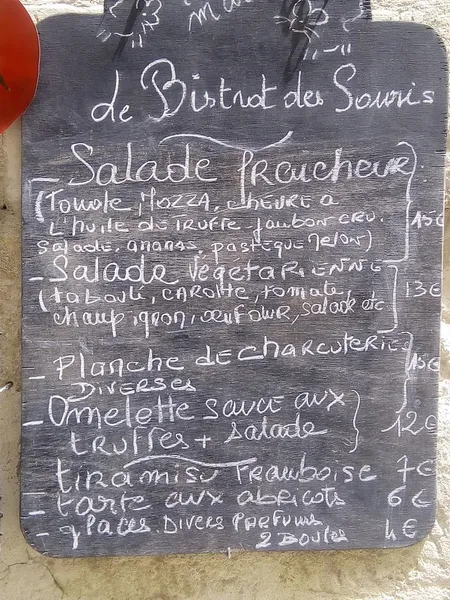 Le Bistrot des Souris
- Salade fraicheur
(Tomate, Mozza, chèvre à
L'huile de truffe. jambon cru. 15€
Salade, ananas, pastèque melon)
- Salade Végétarienne
(taboulé, carotte, tomate, 13€
champignon, œuf dur, salade etc
- Planche de charcuteries 15€
Diverses
- Omelette sauce aux 12€
truffes + salade
- tiramisu Framboise 7€
- tarte aux abricots 6€
- glaces Divers Parfums
2 Boules 4€